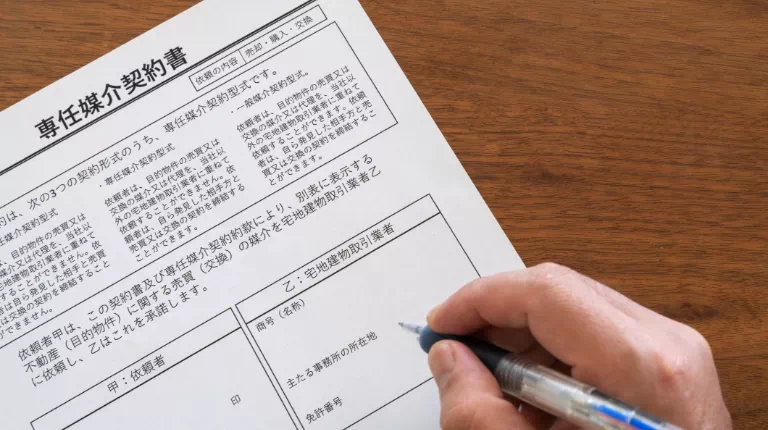 専任媒介契約書
依頼の内容 売却・購入・交換
は、次の3つの契約形式のうち、専任媒介契約型式です。
任媒介契約型式
、目的物件の売買又は
の媒介又は代理を、当社以
宅地建物取引業者に重ねて
することができません。依
は自ら発見した相手と売買
は交換の契約を締結すること
ができません。
・専任媒介契約型式
依頼者は、目的物件の売買又は
交換の媒介又は代理を、当社以
外の宅地建物取引業者に重ねて
依頼することができません。依
頼者は、自ら発見した相手方と
売買又は交換の契約を締結する
ことができます。
・一般媒介契約型式。
依頼者は、目的物件の売買又は
交換の媒介又は代理を、当社以
外の宅地建物取引業者に重ねて
依頼することができます。依頼
者は、自ら発見した相手方と売
買又は交換の契約を締結するこ
とができます。
依頼者甲は、この契約書及び専任媒介契約約款により、別表に表示する
不動産（目的物件）に関する売買（交換）の媒介を宅地建物取引業者乙
に依頼し、乙はこれを承諾します。
甲：依頼者
印
乙：宅地建物取引業者
商号（名称）
主たる事務所の所在地
免許番号